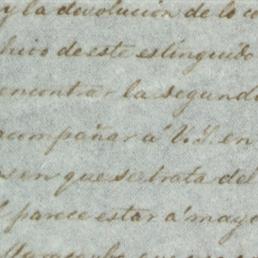 y la devolucion de lo c
hivo de este estinguido
encontrar la segunda
acompañar á V.S. en
en que se trata del
parece estar á mayo